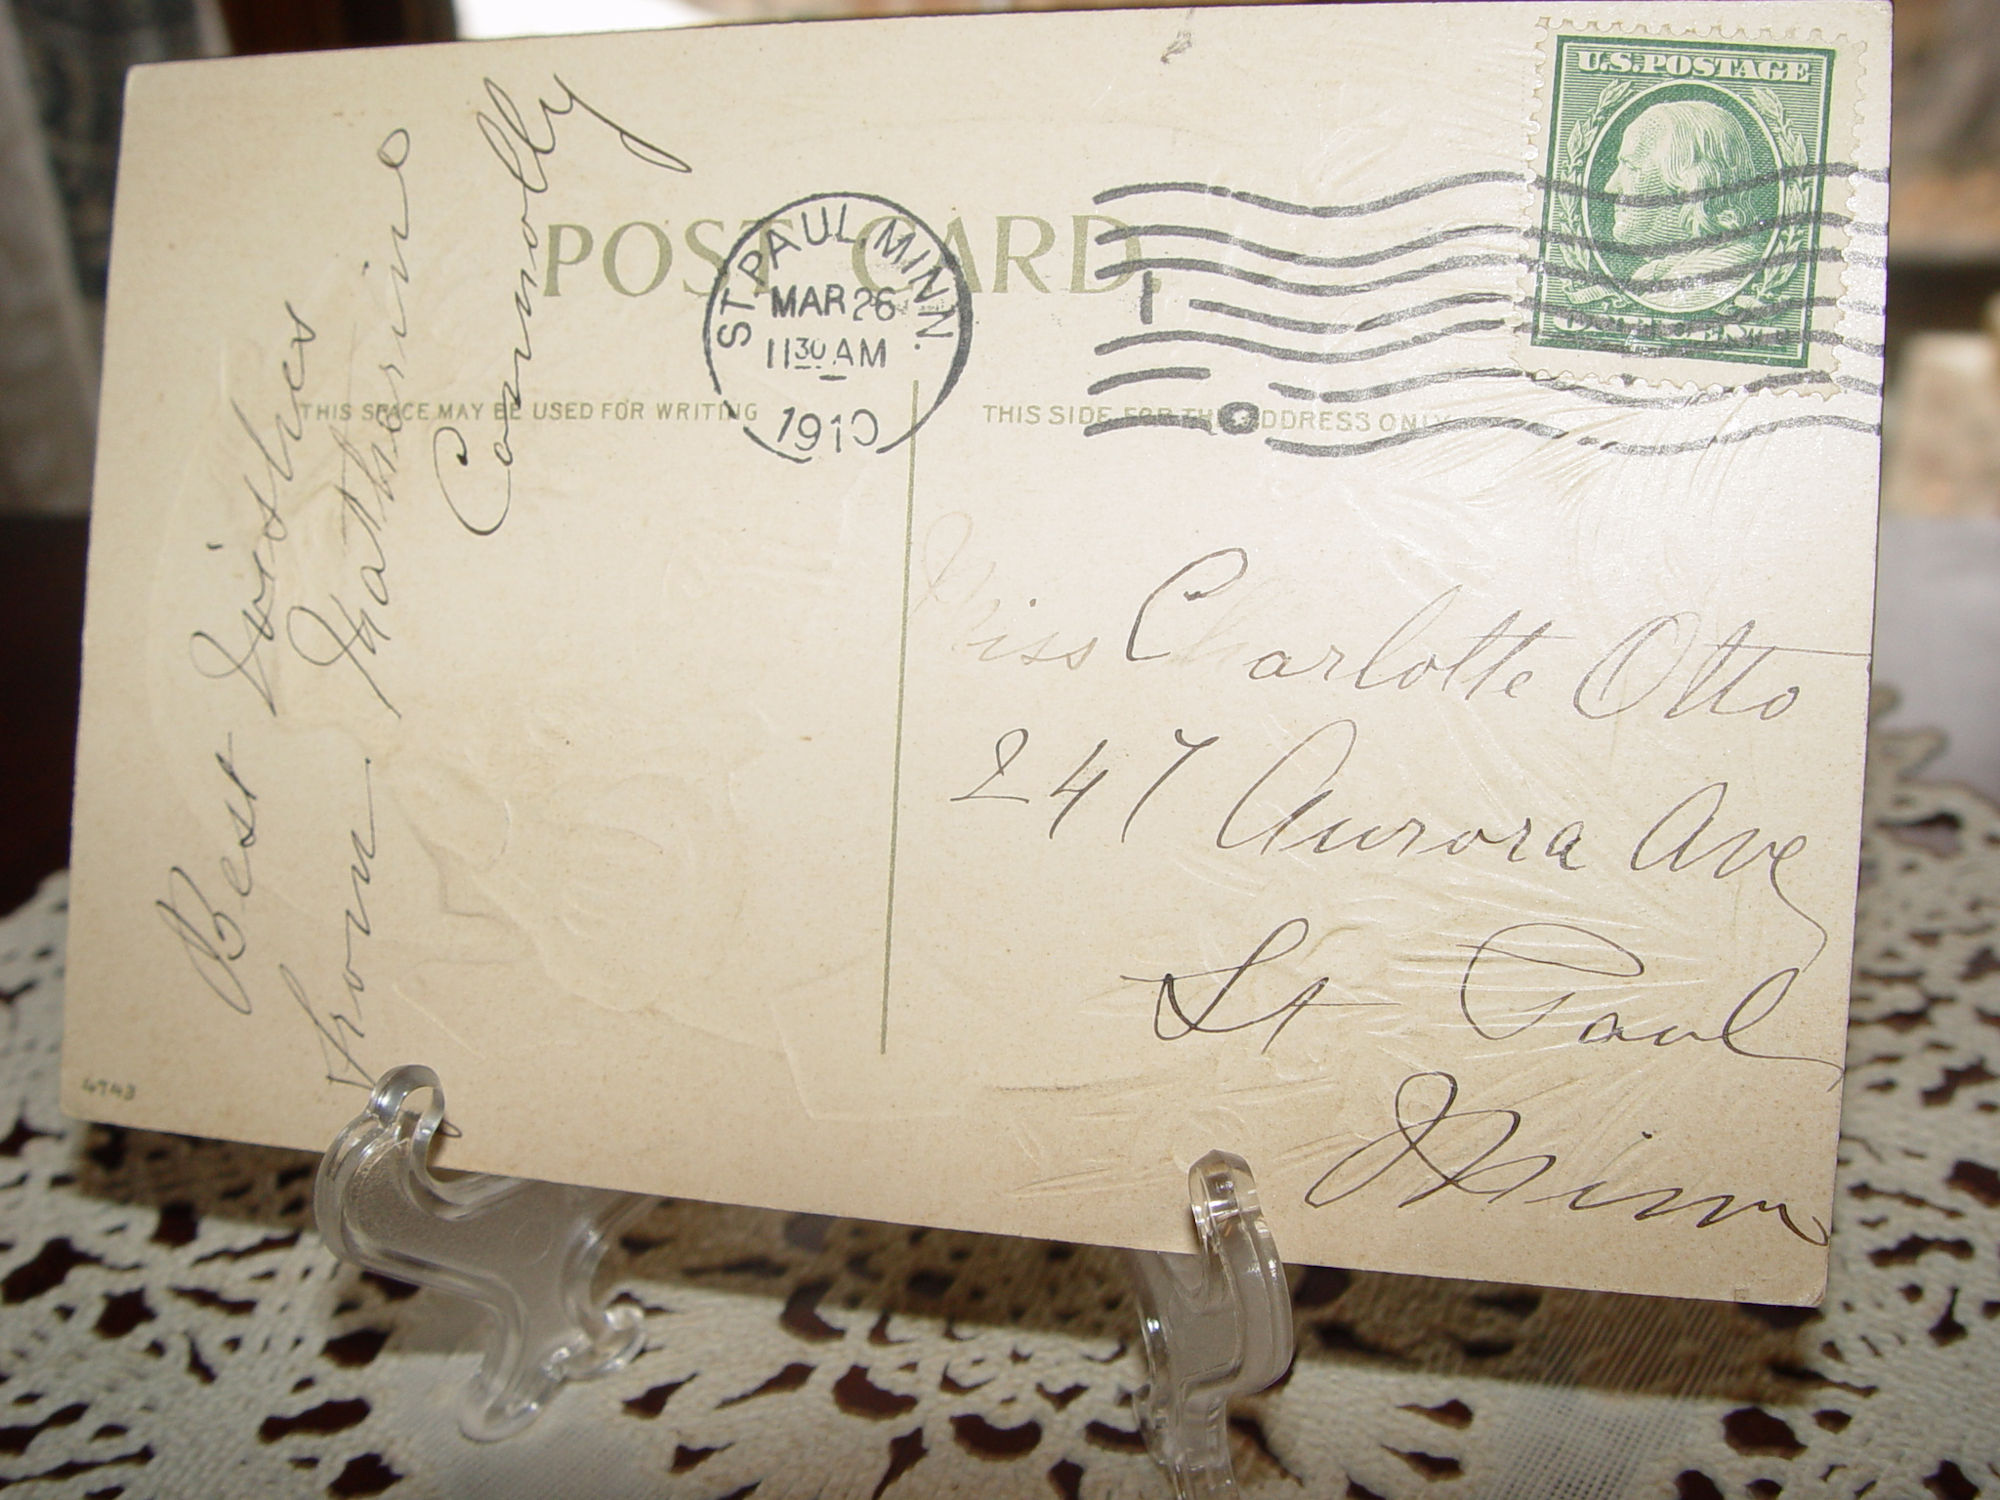 POST CARD.
U.S. POSTAGE
ST. PAUL, MINN.
MAR 26
11 30 AM
1910
THIS SPACE MAY BE USED FOR WRITING
THIS SIDE FOR THE ADDRESS ONLY
Best wishes
from Katherine
Connolly
Miss Charlotte Otto
247 Aurora Ave
St Paul
Minn
4943